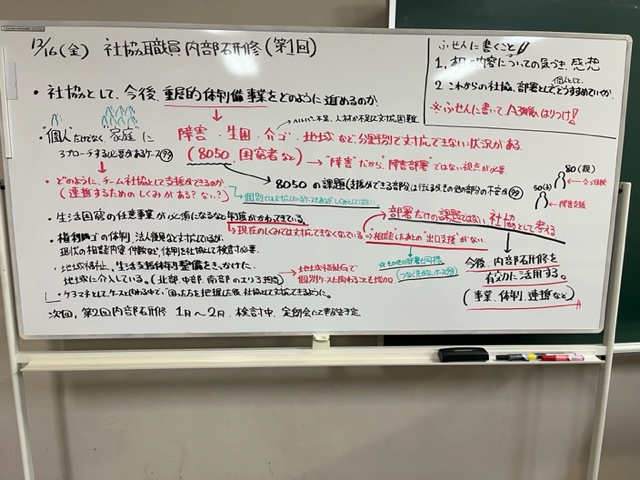 12/16(金) 社協職員内部研修(第1回)
ふせんに書くこと!!
1. 内容についての気づき、感想
2. これからの社協、部署として、個人としてどうすすめていくか。
※ふせんに書いてA3用紙にはりつけ!
・社協として、今後、重層的体制整備事業をどのように進めるのか。
→ヘルパー不足、人材の不足に対応困難
・"個人"だけでなく、"家庭"に
アプローチする必要があるケース
障害・生困・介ゴ・地域など、分野別で対応できない状況がある。
(8050、困窮者など)→"障害"だから、"障害部署"ではない視点が必要。
8050の課題(支援ができる部分は行えるもその他の部分の不安
80(親)
50(子)
→介ゴ保険
→障害支援
・どのように、チーム社協として支援ができるのか
(連携するためのしくみがある?ない?)
→個別では対応しているケースもあるがしくみとしてはない。
・生活困窮の任意事業が必須になるなど年度がかわってきている。
→現在のしくみでは対応できなくなっている
⇒"相談"したあとの"出口支援"がない。
部署だけの課題ではない社協として考える
・権利擁ゴの体制、法人後見など対応しているが、
現状の相談内容、件数など、体制を社協として検討必要。
☆その他の部署も同様。
(つなぐ先がない、ケース
今後、内部研修を
有効に活用する。
(事業、体制、連携など)
・地域福祉、生活支援体制整備をきっかけに、
地域に介入している。(北部、中部、南部のエリア担当)
→地域福祉Gで
個別ケースと関わることも増加。
・ケアマネとして、ケースと関わる中で、"困った方を把握した後、社協として対応できるように。
次回、第2回内部研修 1月〜2月 検討中、定例会にて報告予定